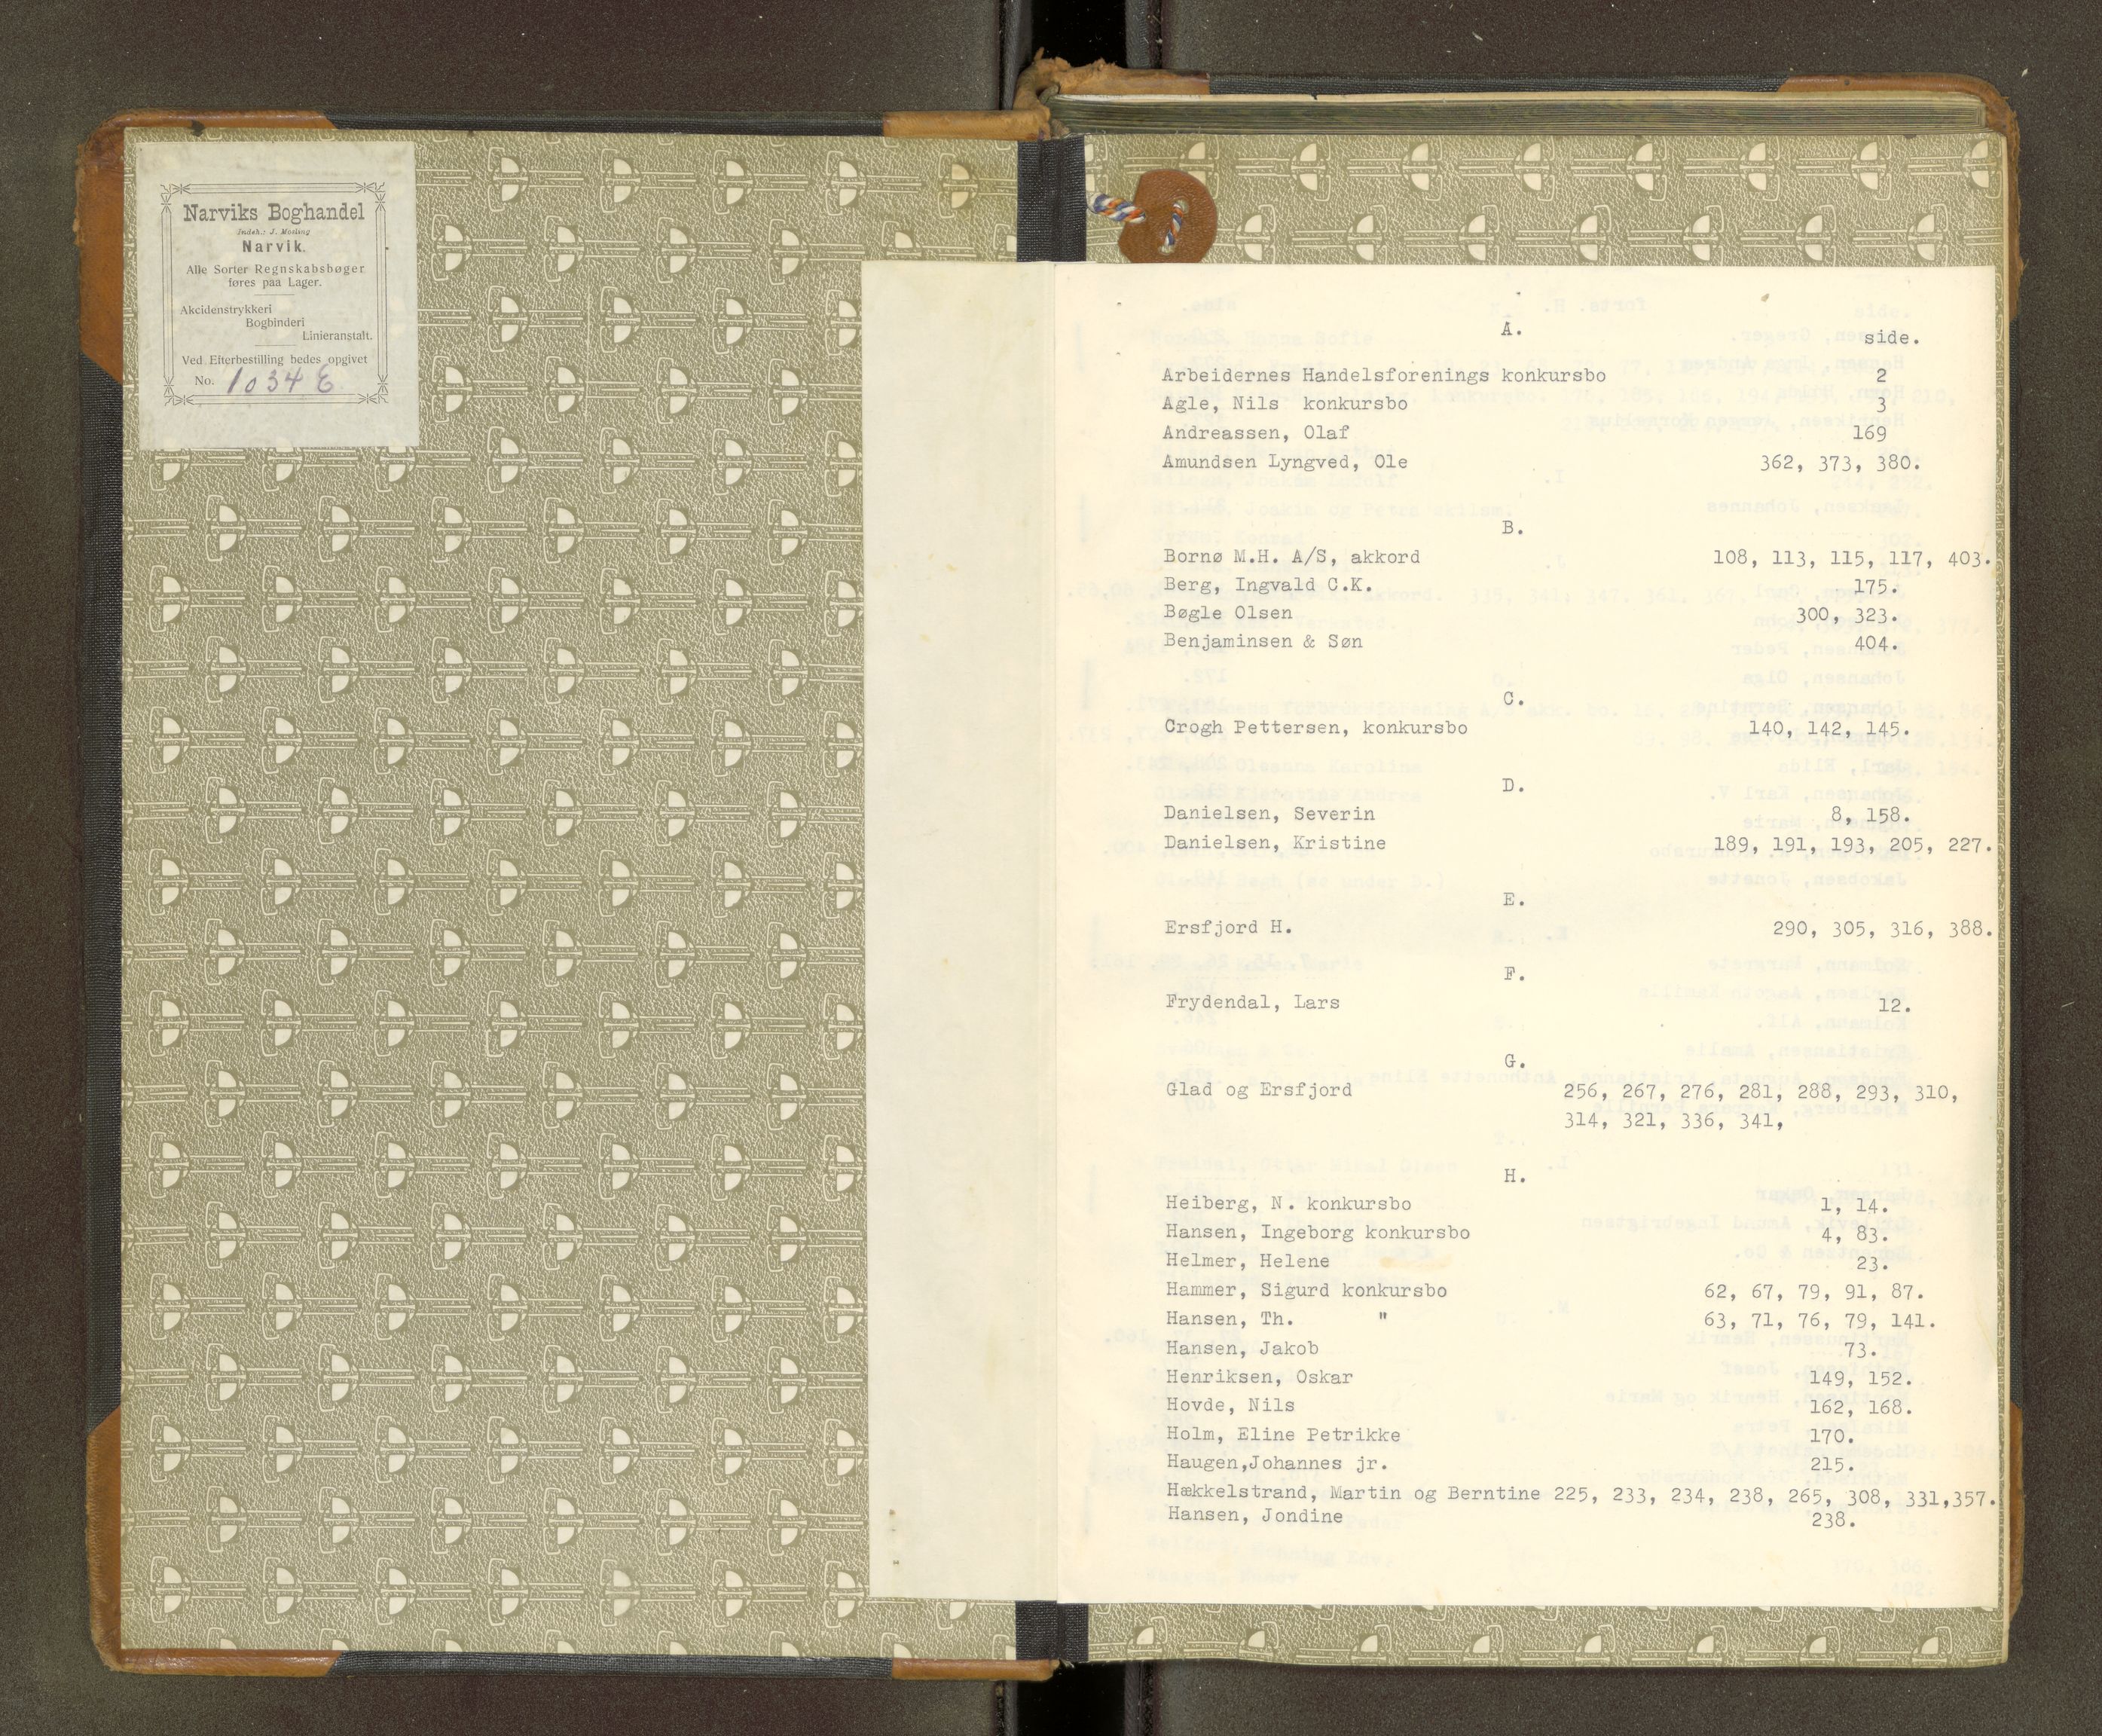 Narviks Boghandel
Indeh.: J. Mosling
Narvik.
Alle Sorter Regnskabsbøger
føres paa Lager.
Akcidenstrykkeri
Bogbinderi
Linieranstalt.
Ved Efterbestilling bedes opgivet
No. 1034 E
A.
side.
Arbeidernes Handelsforenings konkursbo 2
Agle, Nils konkursbo 3
Andreassen, Olaf 169
Amundsen Lyngved, Ole 362, 373, 380.
B.
Bornø M.H. A/S, akkord 108, 113, 115, 117, 403.
Berg, Ingvald C.K. 175.
Bøgle Olsen 300, 323.
Benjaminsen & Søn 404.
C.
Crogh Pettersen, konkursbo 140, 142, 145.
D.
Danielsen, Severin 8, 158.
Danielsen, Kristine 189, 191, 193, 205, 227.
E.
Ersfjord H. 290, 305, 316, 388.
F.
Frydendal, Lars 12.
G.
Glad og Ersfjord 256, 267, 276, 281, 288, 293, 310,
314, 321, 336, 341,
H.
Heiberg, N. konkursbo 1, 14.
Hansen, Ingeborg konkursbo 4, 83.
Helmer, Helene 23.
Hammer, Sigurd konkursbo 62, 67, 79, 91, 87.
Hansen, Th. " 63, 71, 76, 79, 141.
Hansen, Jakob 73.
Henriksen, Oskar 149, 152.
Hovde, Nils 162, 168.
Holm, Eline Petrikke 170.
Haugen,Johannes jr. 215.
Hækkelstrand, Martin og Berntine 225, 233, 234, 238, 265, 308, 331,357.
Hansen, Jondine 238.